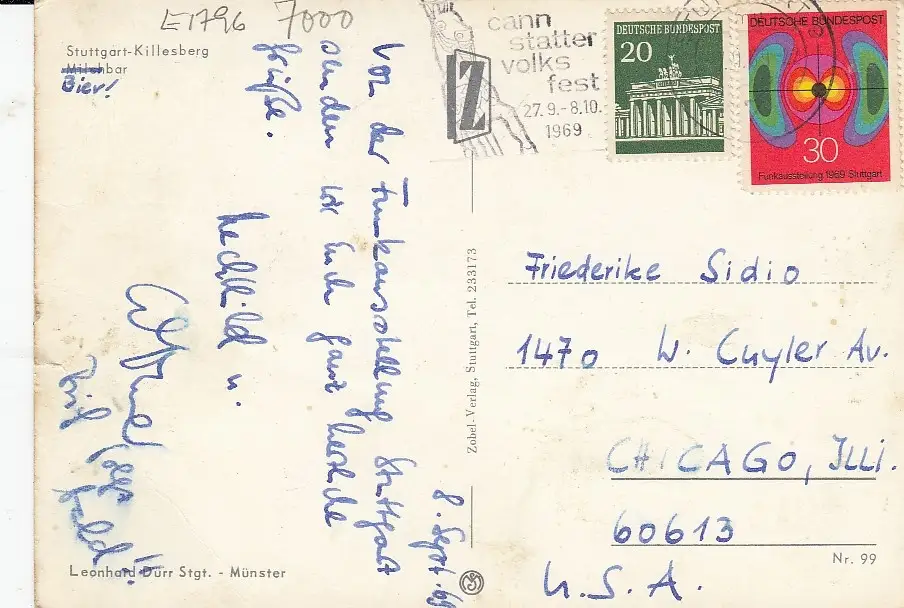 E1796 7000
Stuttgart-Killesberg
Milchbar
Bier!
8. Sept. 69
Von der Funkausstellung Stuttgart
senden wir Euch ganz herzliche
Grüße.
Mechthild u.
cann
statter
volks
fest
27.9.-8.10.
1969
Z
DEUTSCHE BUNDESPOST
20
DEUTSCHE BUNDESPOST
30
Funkausstellung 1969 Stuttgart
Friederike Sidio
1470 W. Cuyler Av.
CHICAGO, ILLI.
60613
U.S.A.
Zobel-Verlag, Stuttgart, Tel. 233173
Leonhard Dürr Stgt. - Münster
Nr. 99